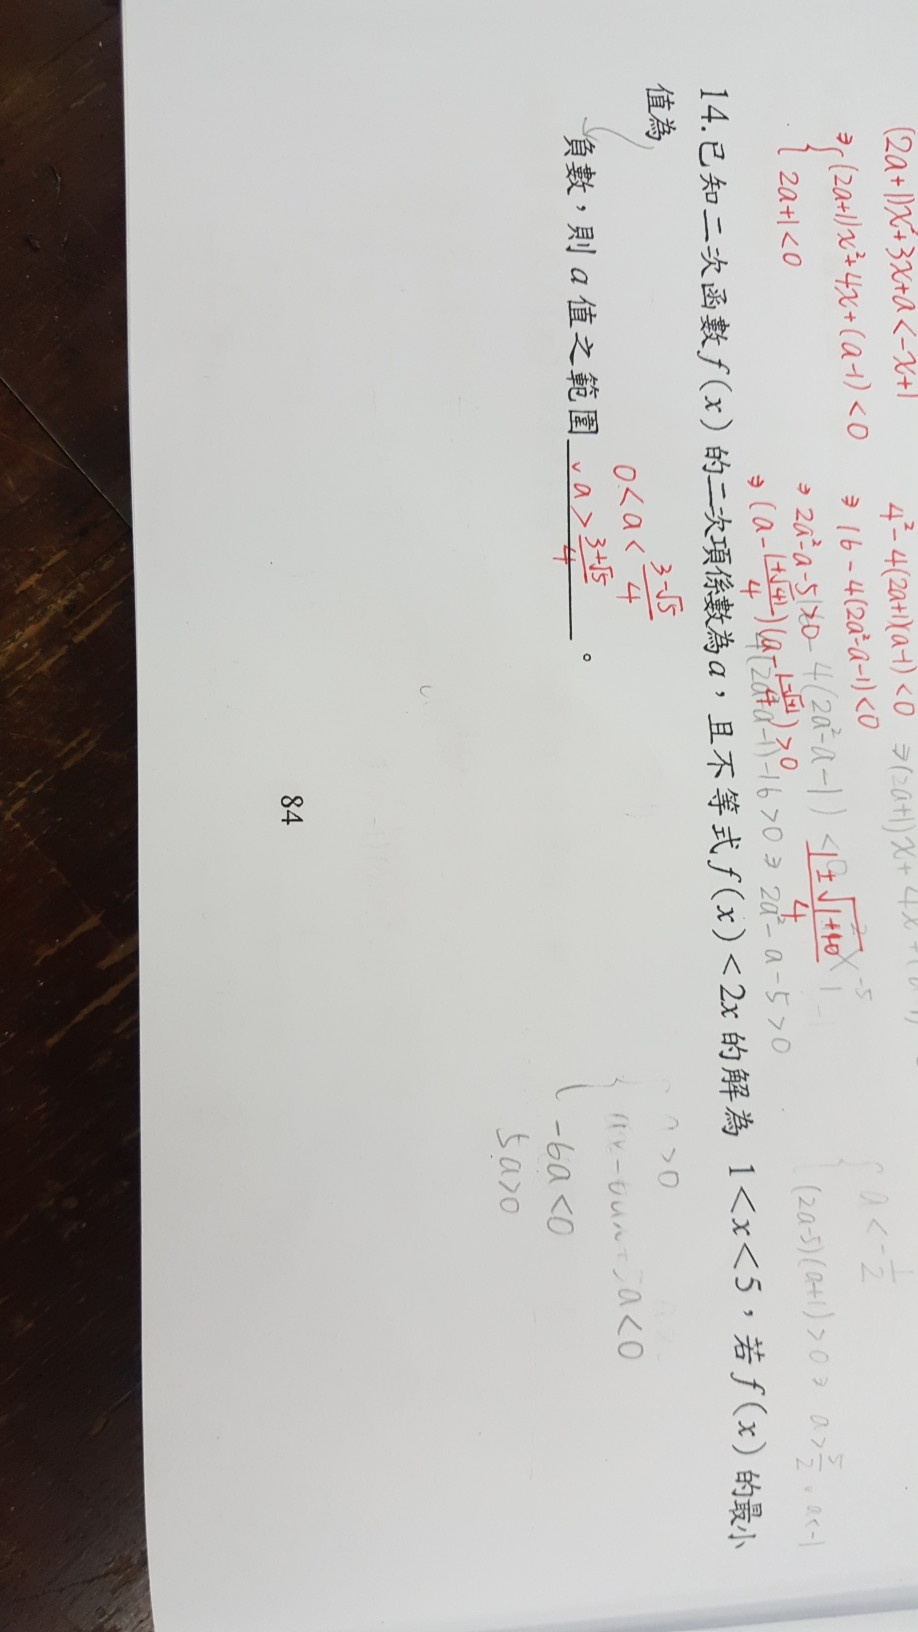 (2a+1)x²+3x+a<-x+1
⇒{(2a+1)x²+4x+(a-1)<0
2a+1<0
4²-4(2a+1)(a-1)<0
⇒(2a+1)x+4x+(a-1)
⇒16-4(2a²-a-1)<0
⇒2a²-a-5>0
-4(2a²-a-1)<
⇒(a-(1+√41)/4)(a-(1-√41)/4)>0
-16>0⇒2a²-a-5>0
(1±√(1+40))/4
{a<-1/2
(2a-5)(a+1)>0⇒a>5/2∨a<-1
14.已知二次函數f(x)的二次項係數為a,且不等式f(x)<2x的解為 1<x<5,若f(x)的最小
值為
負數,則a值之範圍________。
0<a<(3-√5)/4
∨a>(3+√5)/4
>0
a<0
-6a<0
5a>0
84